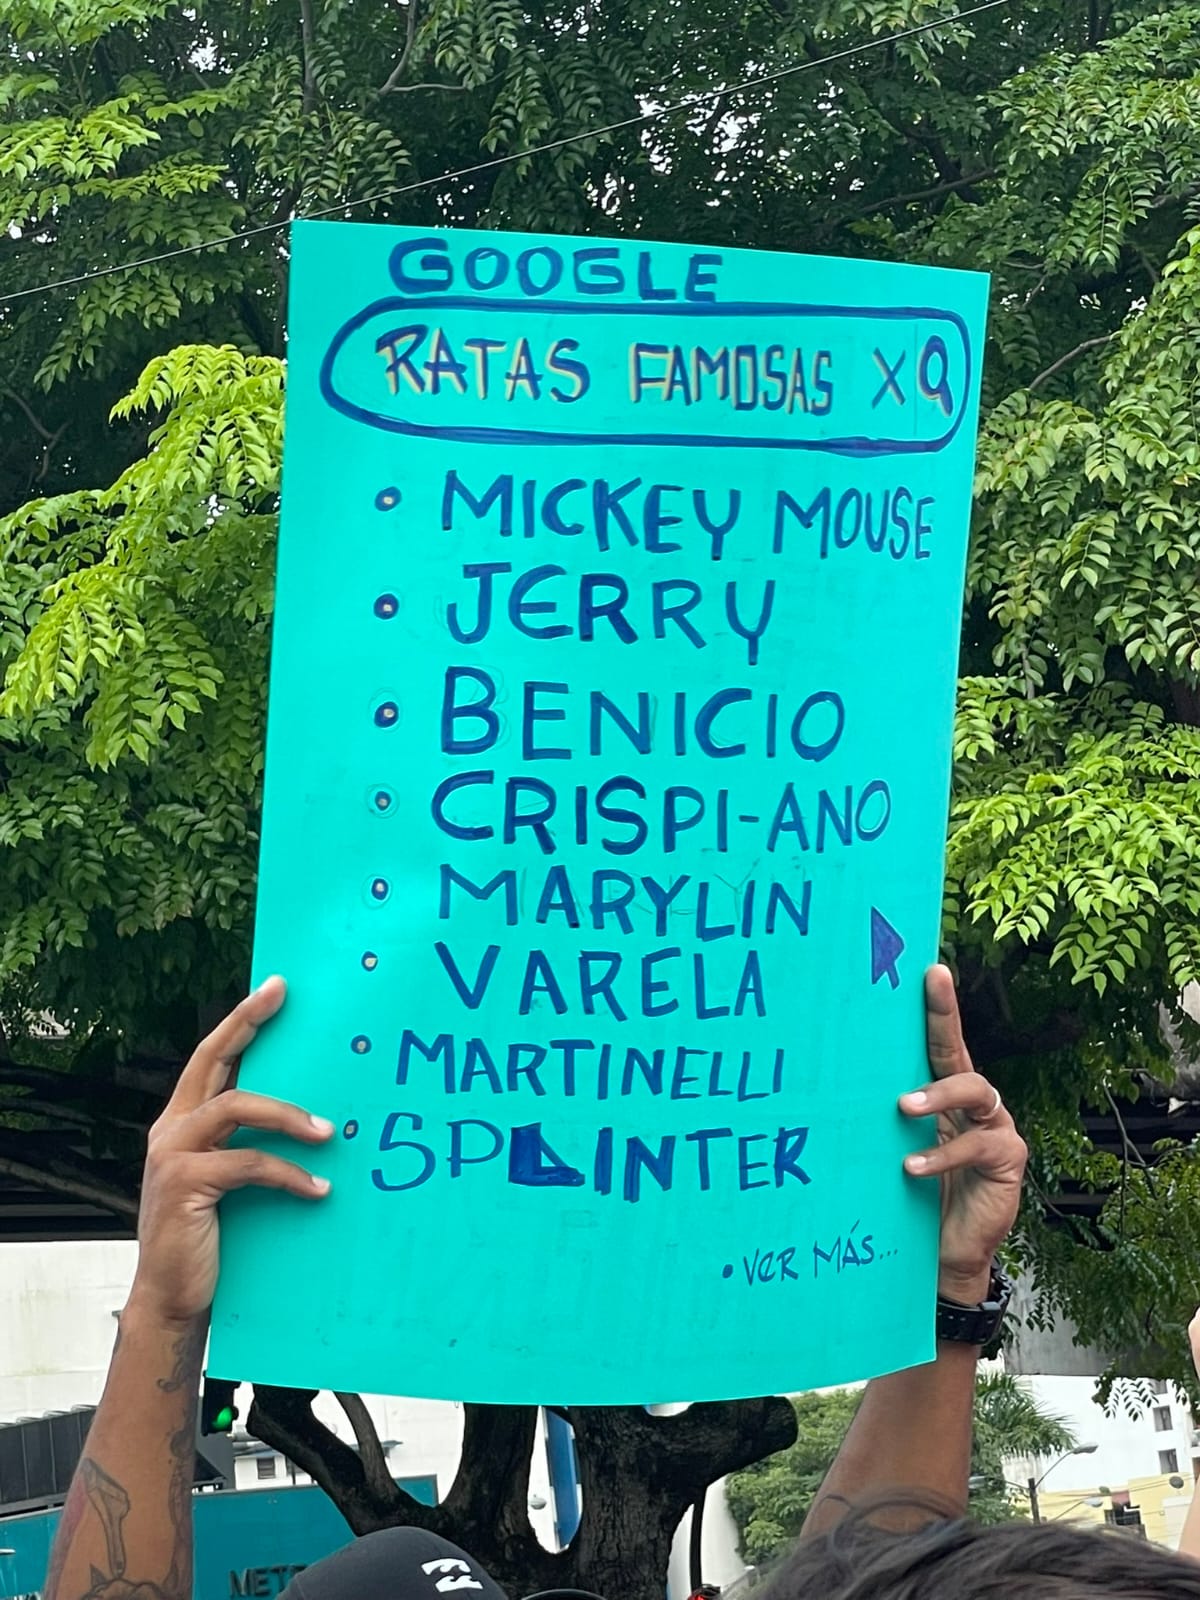 GOOGLE
RATAS FAMOSAS X
• MICKEY MOUSE
• JERRY
• BENICIO
• CRISPI-ANO
• MARYLIN
• VARELA
• MARTINELLI
• SPLINTER
• VER MÁS...